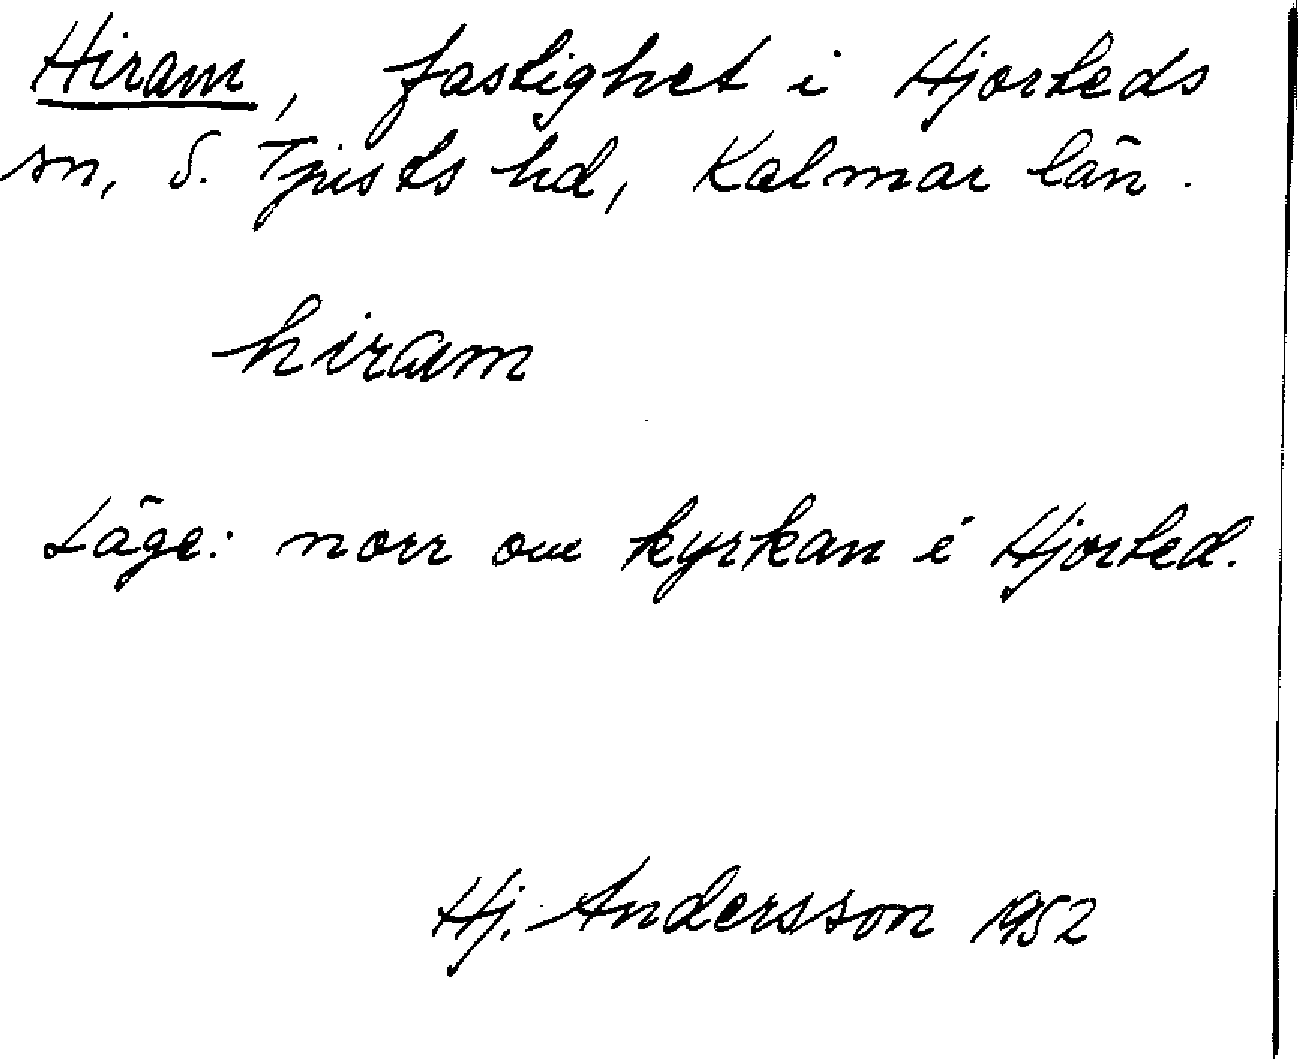 Hiram, fastighet i Hjorteds
sn, S. Tjusts hd, Kalmar län.
hiram
Läge: norr om kyrkan i Hjorted.
Hj. Andersson 1952